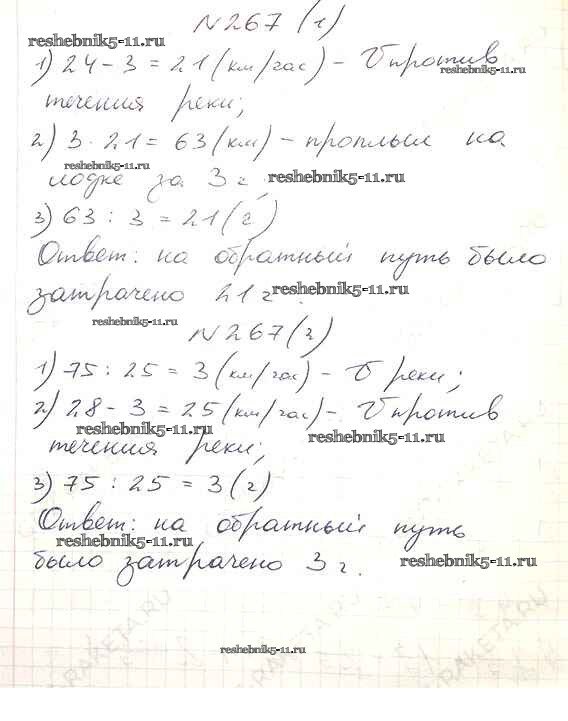 №267 (1)
reshebnik5-11.ru
1) 24 - 3 = 21 (км/час) - V против
reshebnik5-11.ru
течения реки;
2) 3 · 21 = 63 (км) - проплыл на
reshebnik5-11.ru
лодке за 3 ч reshebnik5-11.ru
3) 63 : 3 = 21 (ч)
Ответ: на обратный путь было
затрачено 21 ч reshebnik5-11.ru
reshebnik5-11.ru
№267 (2)
1) 75 : 25 = 3 (км/час) - V реки;
2) 28 - 3 = 25 (км/час) - V против
reshebnik5-11.ru reshebnik5-11.ru
течения реки;
3) 75 : 25 = 3 (ч)
Ответ: на обратный путь
reshebnik5-11.ru
было затрачено 3 ч. reshebnik5-11.ru
reshebnik5-11.ru